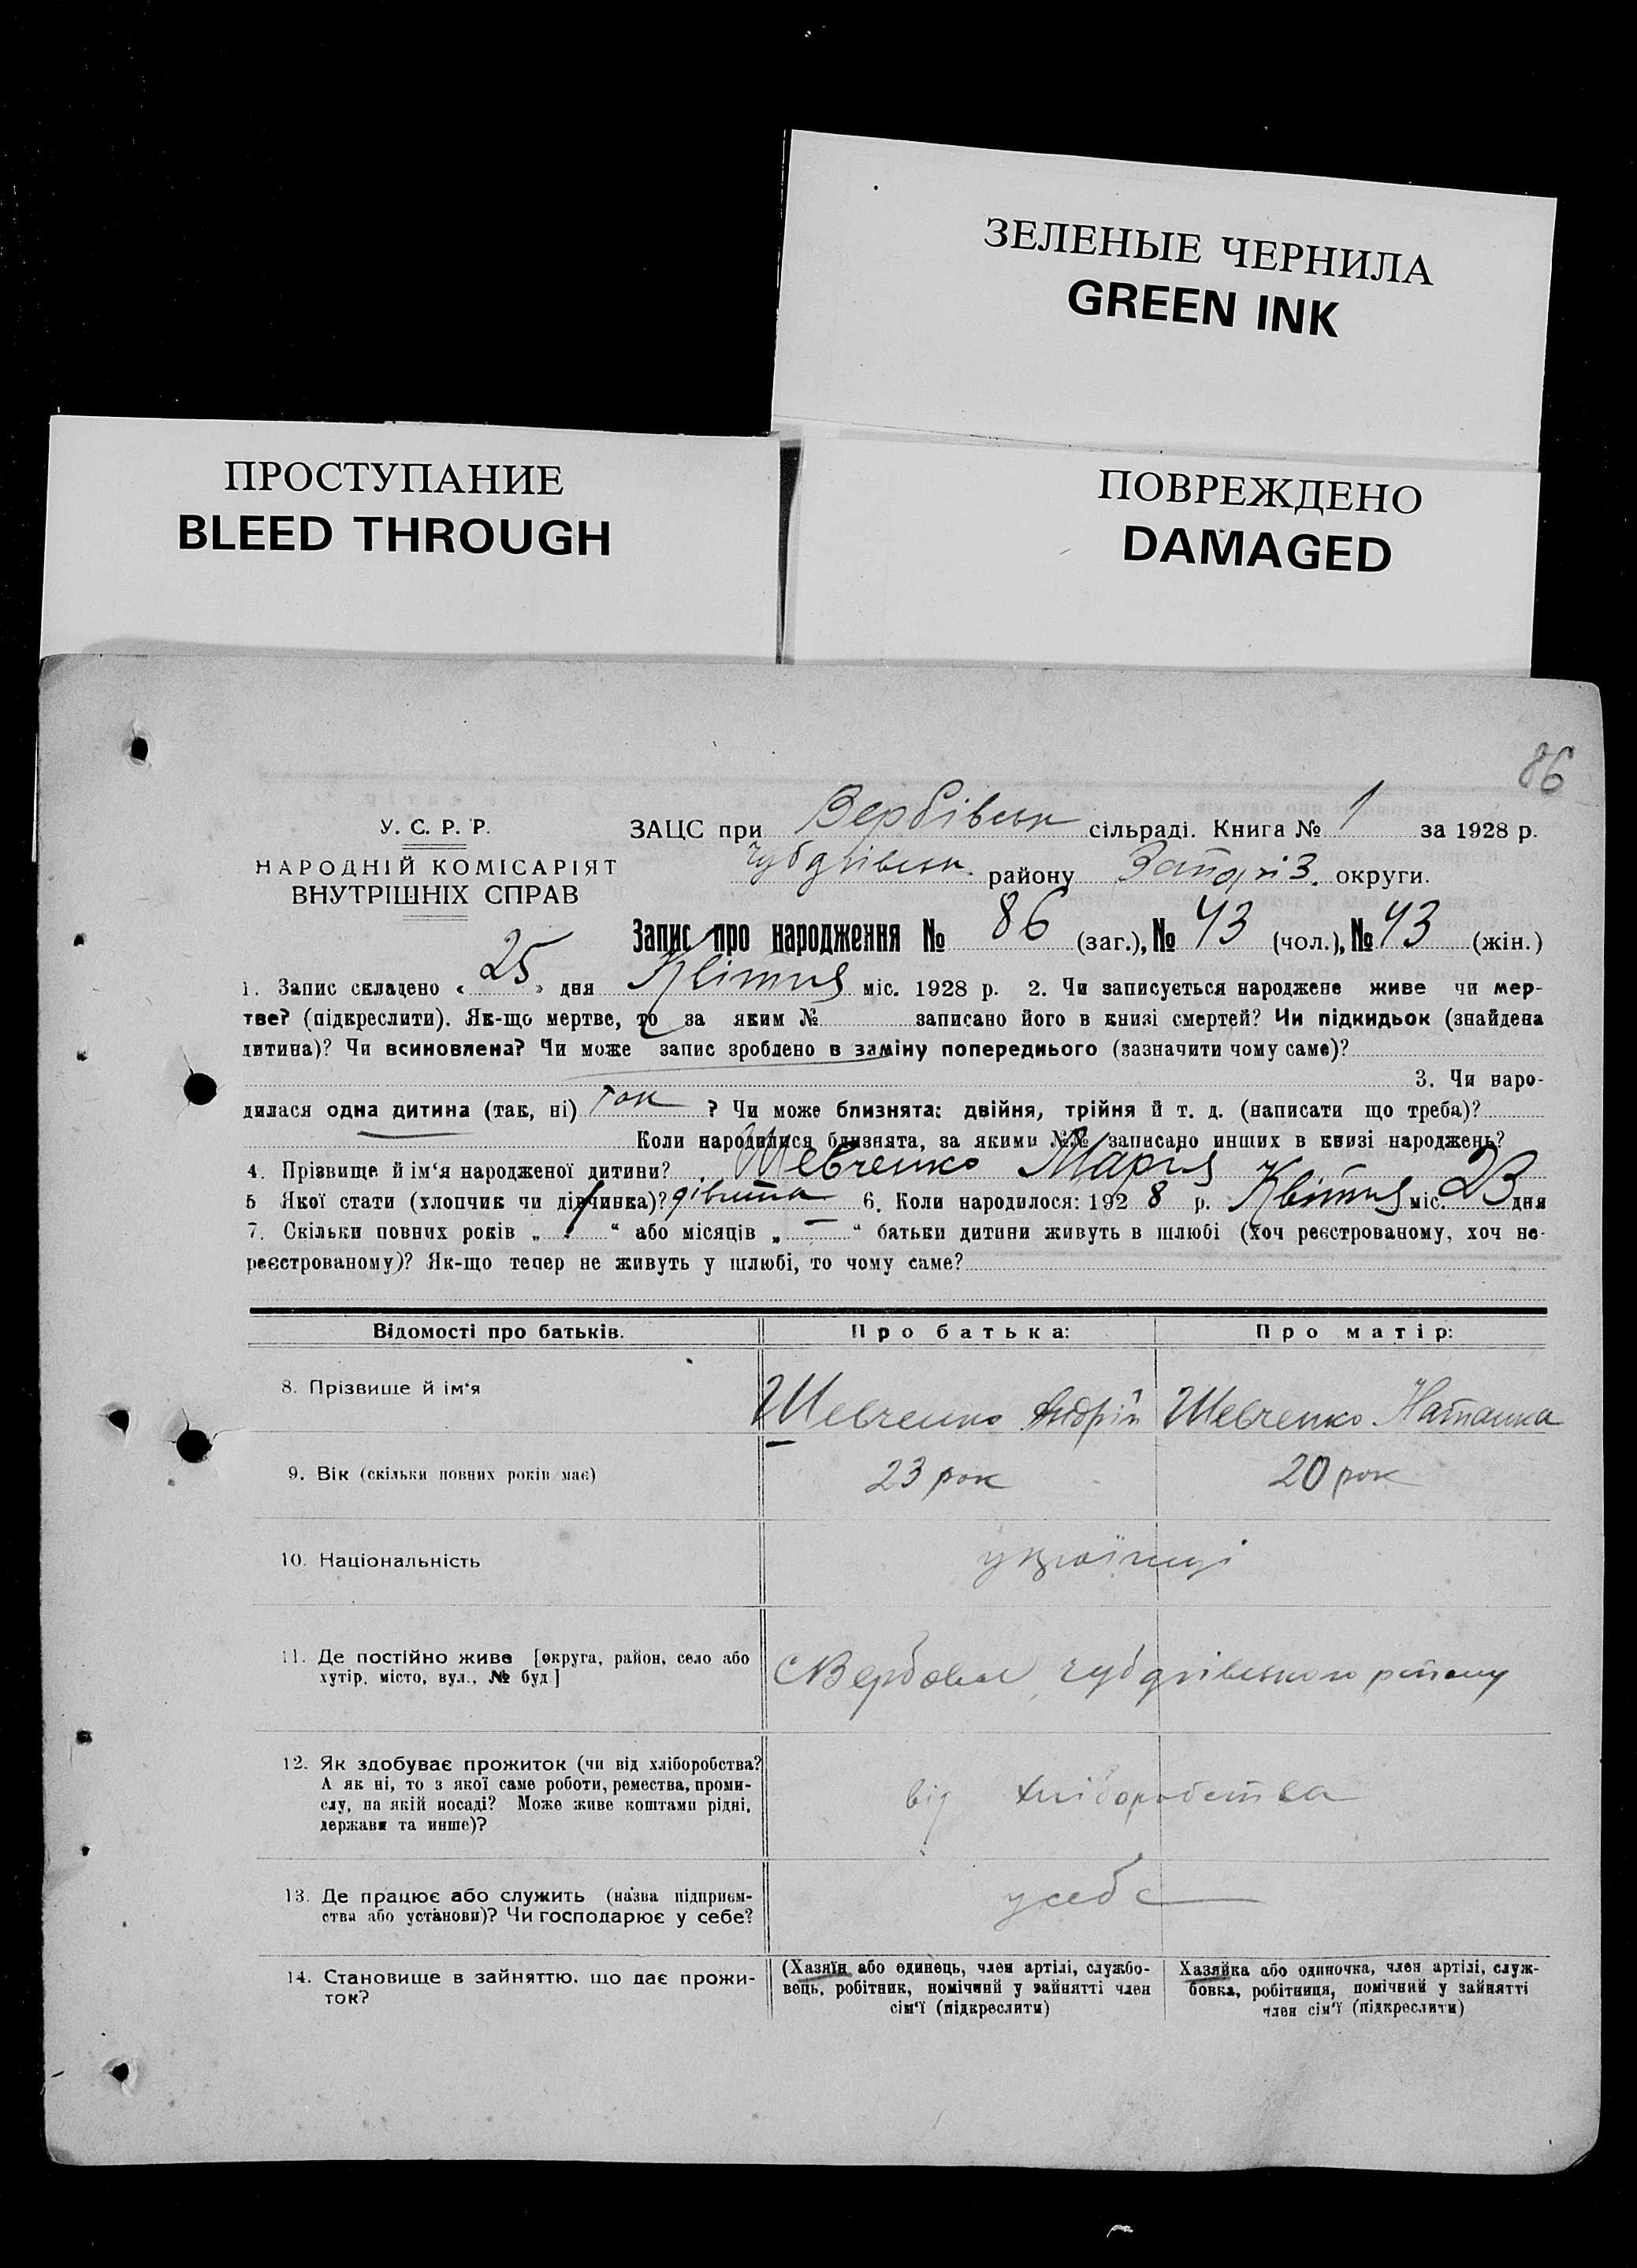 ЗЕЛЕНЫЕ ЧЕРНИЛА
GREEN INK
ПРОСТУПАНИЕ
BLEED THROUGH
ПОВРЕЖДЕНО
DAMAGED
86
У. С. Р. Р.
НАРОДНІЙ КОМІСАРІЯТ
ВНУТРІШНІХ СПРАВ
ЗАЦС при Вербівськ сільраді. Книга № 1 за 1928 р.
району Запоріз. округи.
Запис про народження № 86 (заг.), № 43 (чол.), № 43 (жін.)
1. Запис складено « 25 » дня Квітня міс. 1928 р. 2. Чи записується народжене живе чи мер-
тве? (підкреслити). Як-що мертве, то за яким № записано його в книзі смертей? Чи підкидьок (знайдена
дитина)? Чи всиновлена? Чи може запис зроблено в заміну попереднього (зазначити чому саме)?
3. Чи наро-
дилася одна дитина (так, ні) так ? Чи може близнята: двійня, трійня й т. д. (написати що треба)?
Коли народилися близнята, за якими №№ записано инших в книзі народжень?
4. Прізвище й ім'я народженої дитини? Шевченко Марія
5 Якої стати (хлопчик чи дівчинка)? 6. Коли народилося: 192 8 р. Квітня міс. 23 дня
7. Скільки повних років „ 1 “ або місяців „ — “ батьки дитини живуть в шлюбі (хоч реєстрованому, хоч не-
реєстрованому)? Як-що тепер не живуть у шлюбі, то чому саме?
Відомості про батьків. Про батька: Про матір:
8. Прізвище й ім'я Шевченко Андрій Шевченко Наталка
9. Вік (скільки повних років має) 23 рок 20 рок
10. Національність українці
11. Де постійно живе [округа, район, село або
хутір, місто, вул., № буд]
с Вербове району
12. Як здобуває прожиток (чи від хліборобства?
А як ні, то з якої саме роботи, ремества, проми-
слу, на якій посаді? Може живе коштами рідні,
держави та инше)?
від хліборобства
13. Де працює або служить (назва підприєм-
ства або установи)? Чи господарює у себе?
у себе
14. Становище в зайняттю, що дає прожи-
ток?
(Хазяїн або одинець, член артілі, службо-
вець, робітник, помічний у зайнятті член
сім'ї (підкреслити)
Хазяйка або одиночка, член артілі, служ-
бовка, робітниця, помічний у зайнятті
член сім'ї (підкреслити)